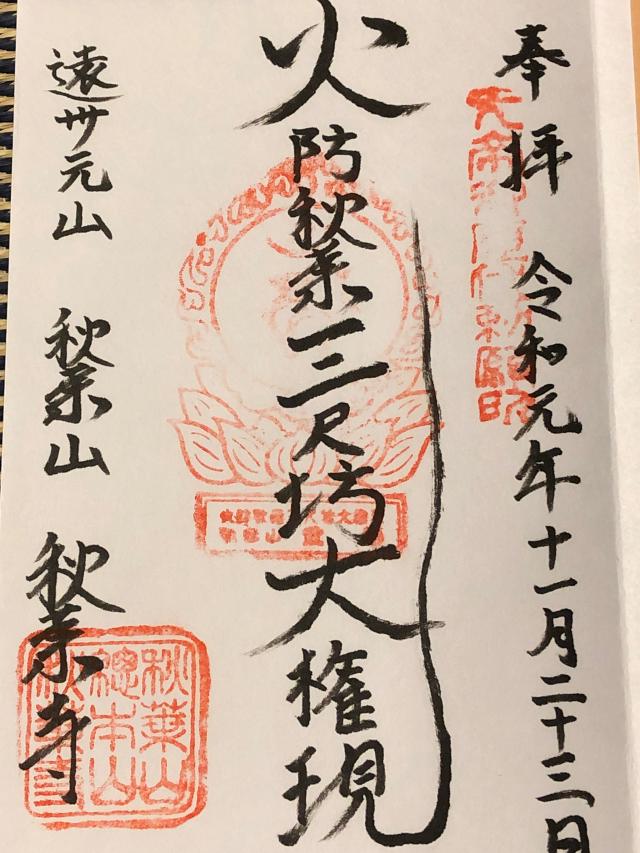 奉拝 令和元年十一月二十三日
火防秋葉三尺坊大権現
遠州元山 秋葉山 秋葉寺
秋葉山
總本山
秋葉寺